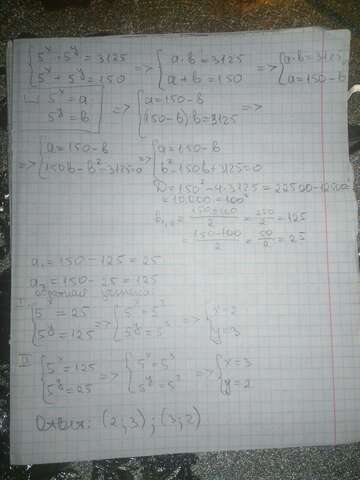 {5ˣ · 5ʸ = 3125 => {a·b = 3125 => {a·b = 3125
{5ˣ + 5ʸ = 150 {a+b = 150 {a = 150-b
5ˣ = a => {a = 150-b =>
5ʸ = b {(150-b)·b = 3125
=> {a = 150-b => {a = 150-b
{150b - b² - 3125 = 0 {b² - 150b + 3125 = 0
D = 150² - 4·3125 = 22500 - 12500 =
= 10,000 = 100²
b₁,₂ = (150+100)/2 = 250/2 = 125
= (150-100)/2 = 50/2 = 25
a₁ = 150 - 125 = 25
a₂ = 150 - 25 = 125
обратная замена
I {5ˣ = 25 => {5ˣ = 5² => {x = 2
{5ʸ = 125 {5ʸ = 5³ {y = 3
II {5ˣ = 125 => {5ˣ = 5³ => {x = 3
{5ʸ = 25 {5ʸ = 5² {y = 2
Ответ: (2;3); (3;2)